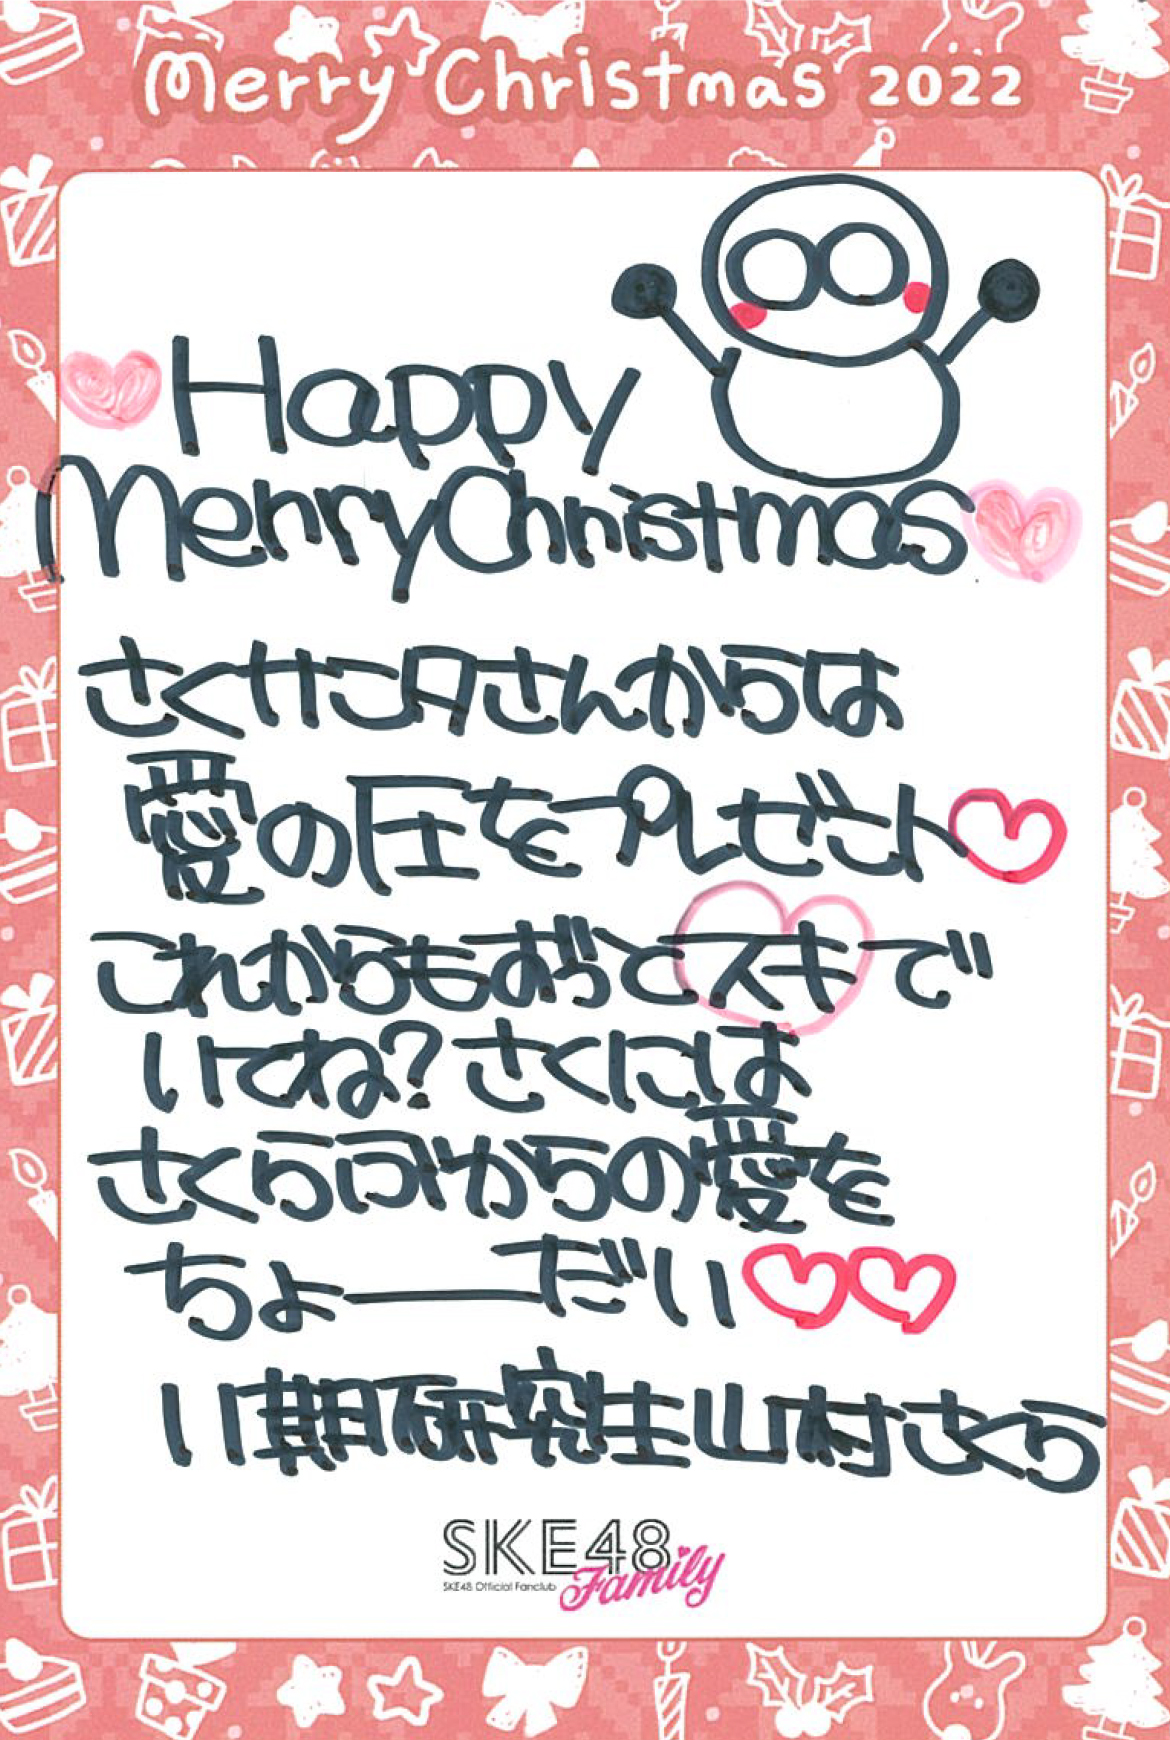 Merry Christmas 2022
Happy
MerryChristmas
さくサこ夕さんからは
愛の圧をプレゼント
これからもずっとスキで
いてね?さくには
さくらからの愛を
ちょーーだい
11期研究生山村さくら
SKE48
Family
SKE48 Official Fanclub